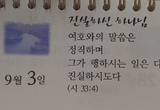 진실하신 하나님
여호와의 말씀은
정직하며
그가 행하시는 일은 다
진실하시도다
(시 33:4)
9월 3일